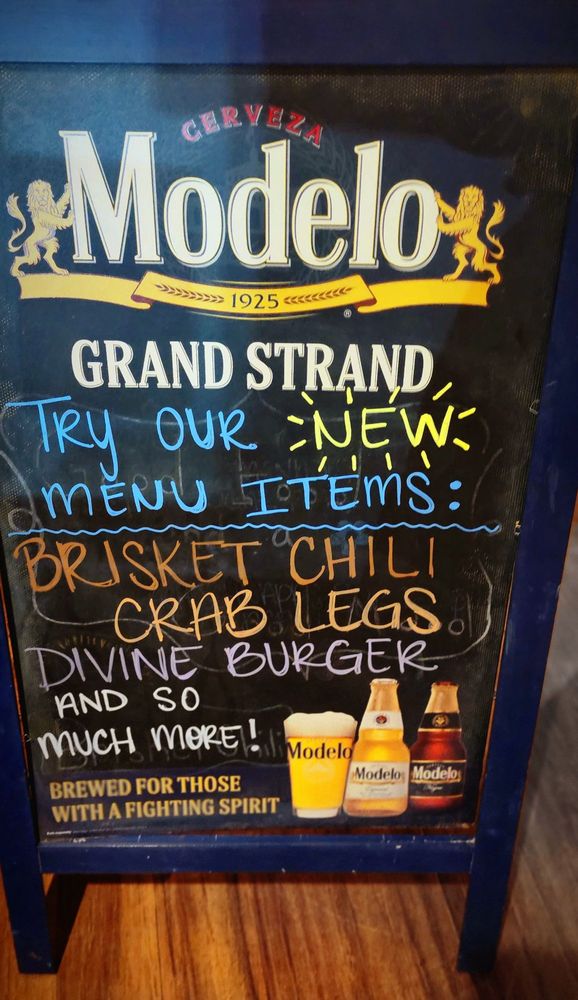 CERVEZA
Modelo
1925
®
GRAND STRAND
TRY OUR NEW
MENU ITEMS:
BRISKET CHILI
CRAB LEGS
DIVINE BURGER
AND SO
MUCH MORE!
Modelo
Modelo
Modelo
BREWED FOR THOSE
WITH A FIGHTING SPIRIT